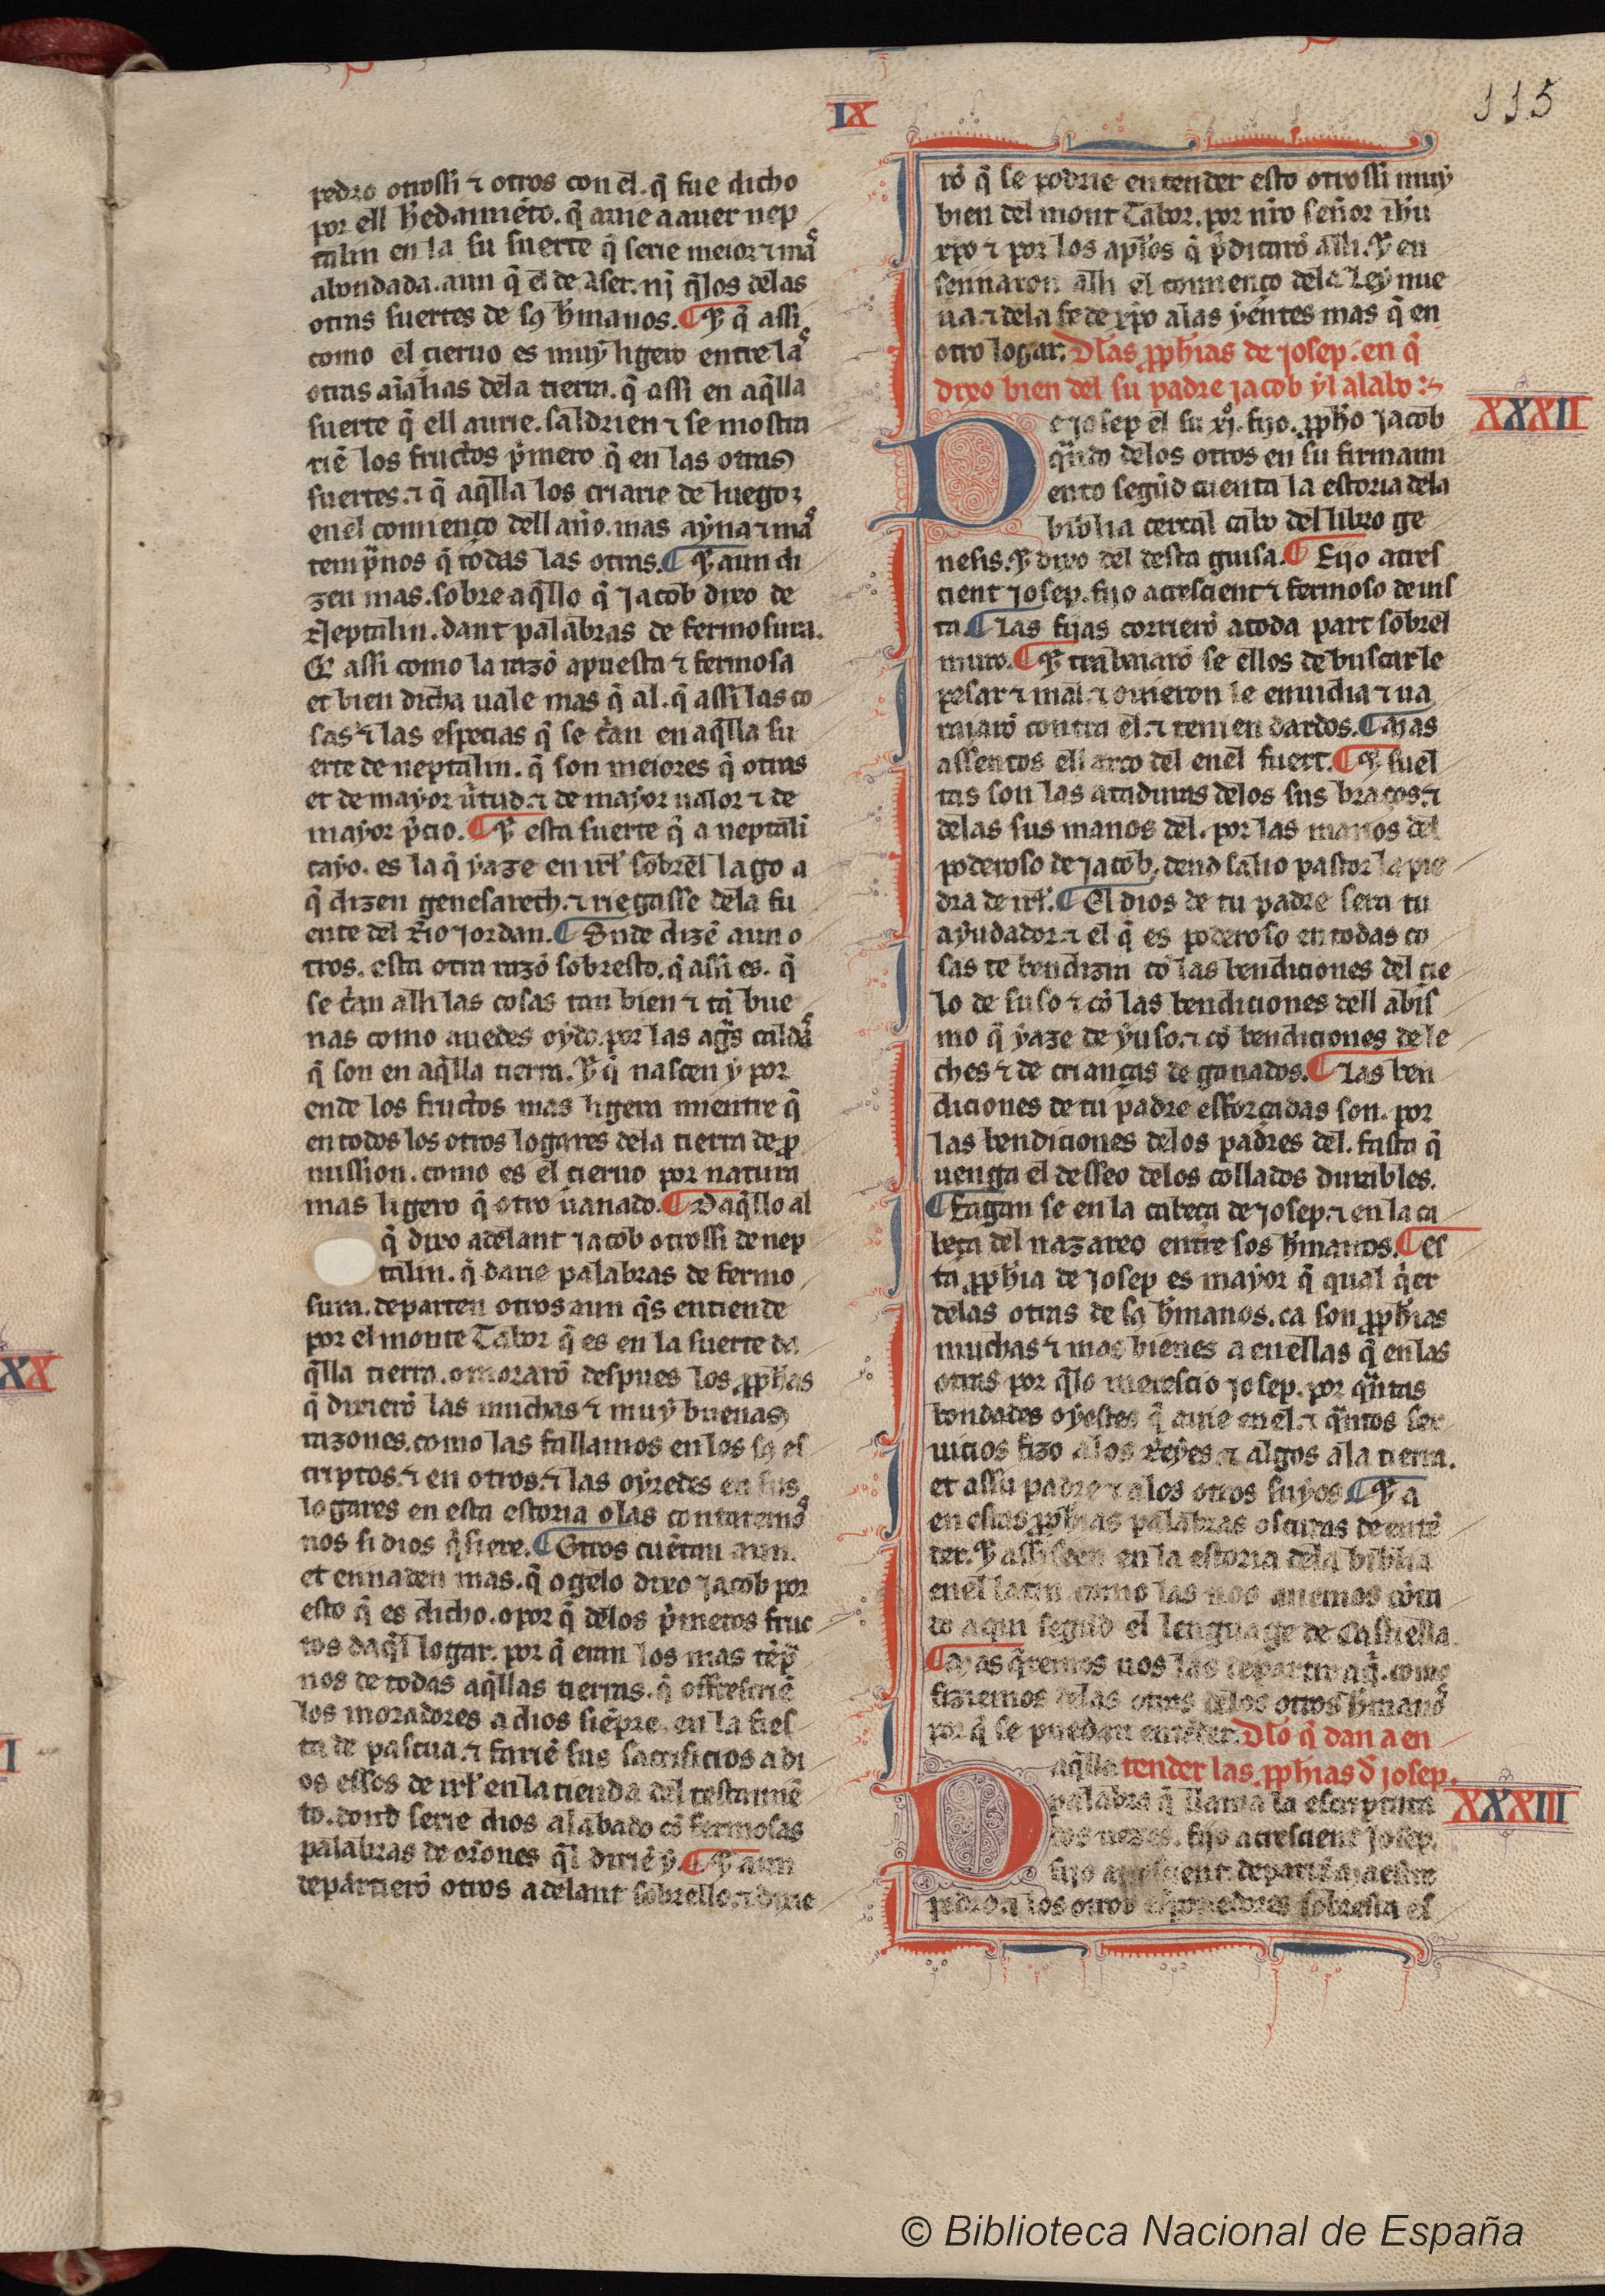 IX
115
pedro otrossi ⁊ otros con el. q̃ fue dicho
por ell h̃edamiẽto. q̃ auie a auer nep
talin en la su suerte q̃ serie meior ⁊ mas
abondada. aun q̃ el de Aser. nj q̃los delas
otras suertes de sꝯ h̃manos. ¶ Et q̃ assi
como el cieruo es muẏ ligero entre las
otras aĩalias dela tierra. q̃ assi en aq̃lla
suerte q̃ ell aurie. saldrien ⁊ se mostra
riẽ los fructos p̃mero q̃ en las otras
suertes. ⁊ q̃ aq̃lla los criarie de luego ⁊
en el comienço dell año. mas aẏna ⁊ mas
temp̃nos q̃ todas las otras. ¶ Et aun di
zen mas. sobre aq̃llo q̃ Jacob dixo de
Neptalin. dant palabras de fermosura.
Et assi como la razõ apuesta ⁊ fermosa
et bien dicha uale mas q̃ al. q̃ assi las co
sas ⁊ las especias q̃ se c̃an en aq̃lla su
erte de neptalin. q̃ son meiores q̃ otras
et de mayor ũtud. ⁊ de mayor ualor ⁊ de
mayor p̃cio. ¶ Et esta suerte q̃ a neptali
cayo. es la q̃ ẏaze en irł sobrel lago a
q̃ dizen genesarech. ⁊ riegasse dela fu
ente del Rio Jordan. ¶ Onde dizẽ aun o
tros. esta otra razõ sobresto. q̃ assi es. q̃
se c̃an alli las cosas tan bien ⁊ tã bue
nas como auedes oẏdo. por las ag̃s caldas
q̃ son en aq̃lla tierra. Et q̃ nascen ẏ por
ende los fructos mas ligera mientre q̃
en todos los otros logares dela tierra de ꝓ
mission. como es el cieruo por natura
mas ligero q̃ otro uanado. ¶ Daq̃llo al
q̃ dixo adelant Jacob otrossi de nep
talin. q̃ darie palabras de fermo
sura. departen otros aun q̃s entiende
por el monte Tabor q̃ es en la suerte da
q̃lla tierra. o moraro᷈ despues los ꝓph̃as
q̃ dixierõ las muchas ⁊ muẏ buenas
razones. como las fallamos en los sꝯ es
criptos. ⁊ en otros. ⁊ las oẏredes en sus
logares en esta estoria o las contaremos
nos si dios q̃siere. ¶ Otros cuẽtan aun.
et ennaden mas. q̃ o gelo dixo Jacob por
esto q̃ es dicho. o por q̃ delos p̃meros fruc
tos daq̃l logar. por q̃ eran los mas tẽp̃
nos de todas aq̃llas tierras. q̃ offresciẽ
los moradores a dios siẽpre. en la fies
ta de pascua. ⁊ fariẽ sus sacrificios a di
os essos de irł en la tienda del testamẽ
to. dond serie dios alabado cõ fermosas
palabras de orõnes q̃l diriẽ ẏ. ¶ Et aun
departierõ otros adelant sobrello. ⁊ dixie
rõ q̃ se podrie entender esto otrossi muẏ
bien del mont Tabor. por nr̃o señor ih̃u
xp̃o ⁊ por los ap̃los q̃ p̃dicarõ alli. Et en
sennaron alli el comienço dela Leẏ nue
ua. ⁊ dela fe de xp̃o alas ẏentes mas q̃ en
otro logar. Dlas ꝓph̃ias de Josep. en q̃
dixo bien del su padre Jacob ẏl alabo
XXXII
De Josep el su xj. fijo. ꝓph̃o Jacob
q̃ndo delos otros en su firmam
ento segũd cuenta la estoria dela
biblia cercal cabo del libro ge
nesis. Et dixo del desta guisa. ¶ Fijo acres
cient Josep. fijo acrescient ⁊ fermoso de uis
ta. ¶ Las fijas corrierõ a toda part sobrel
muro. ¶ Et trabaiarõ se ellos de buscarle
pesar ⁊ mal. ⁊ ouieron le enuidia ⁊ ua
raiarõ contra el. ⁊ tenien dardos. ¶ Mas
assentos ell arco del en el fuert. ¶ Et suel
tas son las ataduras delos sus braços. ⁊
delas sus manos del. por las manos del
poderoso de Jacob. dend salio pastor la pie
dra de irł. ¶ El dios de tu padre sera tu
aẏudador. ⁊ el q̃ es poderoso en todas co
sas te bendizra cõ las bendiciones del cie
lo de suso ⁊ cõ las bendiciones dell abis
mo q̃ ẏaze de ẏuso. ⁊ cõ bendiciones de le
ches ⁊ de crianças de ganados. ¶ Las ben
diciones de tu padre esforçadas son. por
las bendiciones delos padres del. fasta q̃
uenga el desseo delos collados durables.
¶ Fagan se en la cabeça de Josep. ⁊ en la ca
beça del nazareo entre sos h̃manos. ¶ Es
ta ꝓph̃ia de Josep es mayor q̃ qual q̃er
delas otras de sꝯ h̃manos. ca son ꝓph̃ias
muchas ⁊ mas bienes a en ellas q̃ en las
otras por q̃lo merescio Josep. por q̃ntas
bondades oẏestes q̃ auie en el. ⁊ q̃ntos ser
uicios fizo alos Reẏes. ⁊ algos ala tierra.
et assu padre ⁊ alos otros suẏos. ¶ Et a
en estas ꝓph̃ias palabras oscuras de entẽ
der. Et assi seen en la estoria dela biblia
en el latin como las nos auemos cõta
do aqui segũd el lenguage de Castiella.
¶ Mas q̃remos nos las departir aq̃. como
fiziemos delas otras delos otros h̃manos
por q̃ se puedan entẽder. Dlo q̃ dan a en
tender las ꝓph̃ias d̃ Josep.
XXXIII
Daq̃lla
palabra q̃ llama la escriptura
dos uezes. fijo acrescient Josep.
fijo acrescient. departẽ maestre
pedro ⁊ los otros esponedores sobresta es
XX
I
© Biblioteca Nacional de España